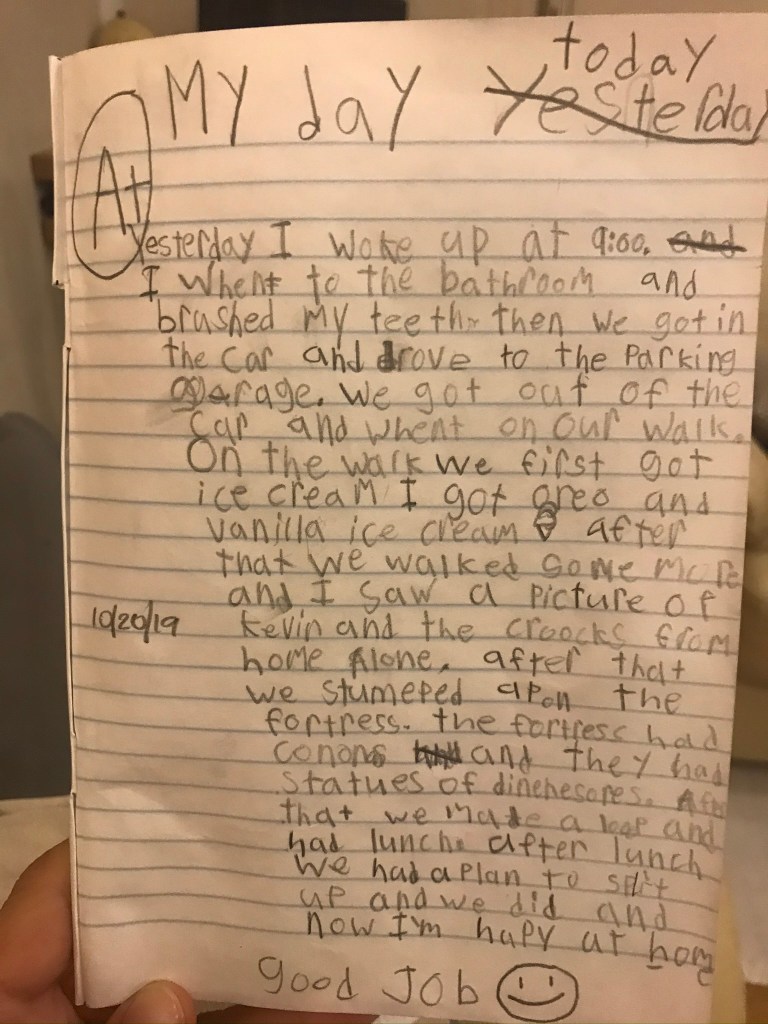 today
My day Yesterday
A+
Yesterday I woke up at 9:00. and
I whent to the bathroom and
brushed my teeth. then we got in
the car and drove to the Parking
garage. we got out of the
car and whent on our walk.
On the walk we first got
ice cream I got oreo and
vanilla ice cream after
that we walked some more
and I saw a picture of
10/20/19
kevin and the croocks from
home Alone. after that
we stumeped apon the
fortress. the fortress had
conons and they had
statues of dinehesores. After
that we made a loop and
had lunch. after lunch
we had a plan to split
up and we did and
now I'm hapy at home
good JOb